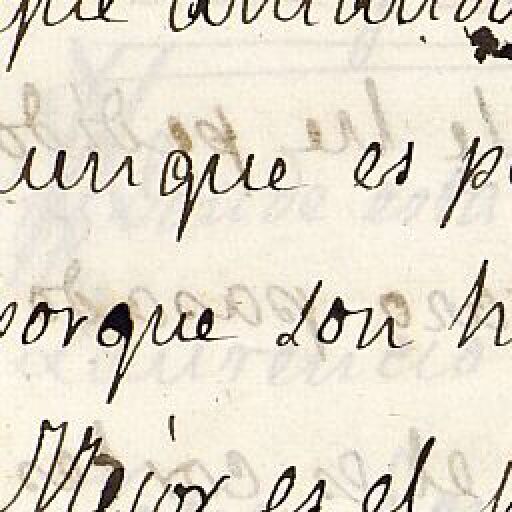 que
unque es p
orque son h
Mejor es el